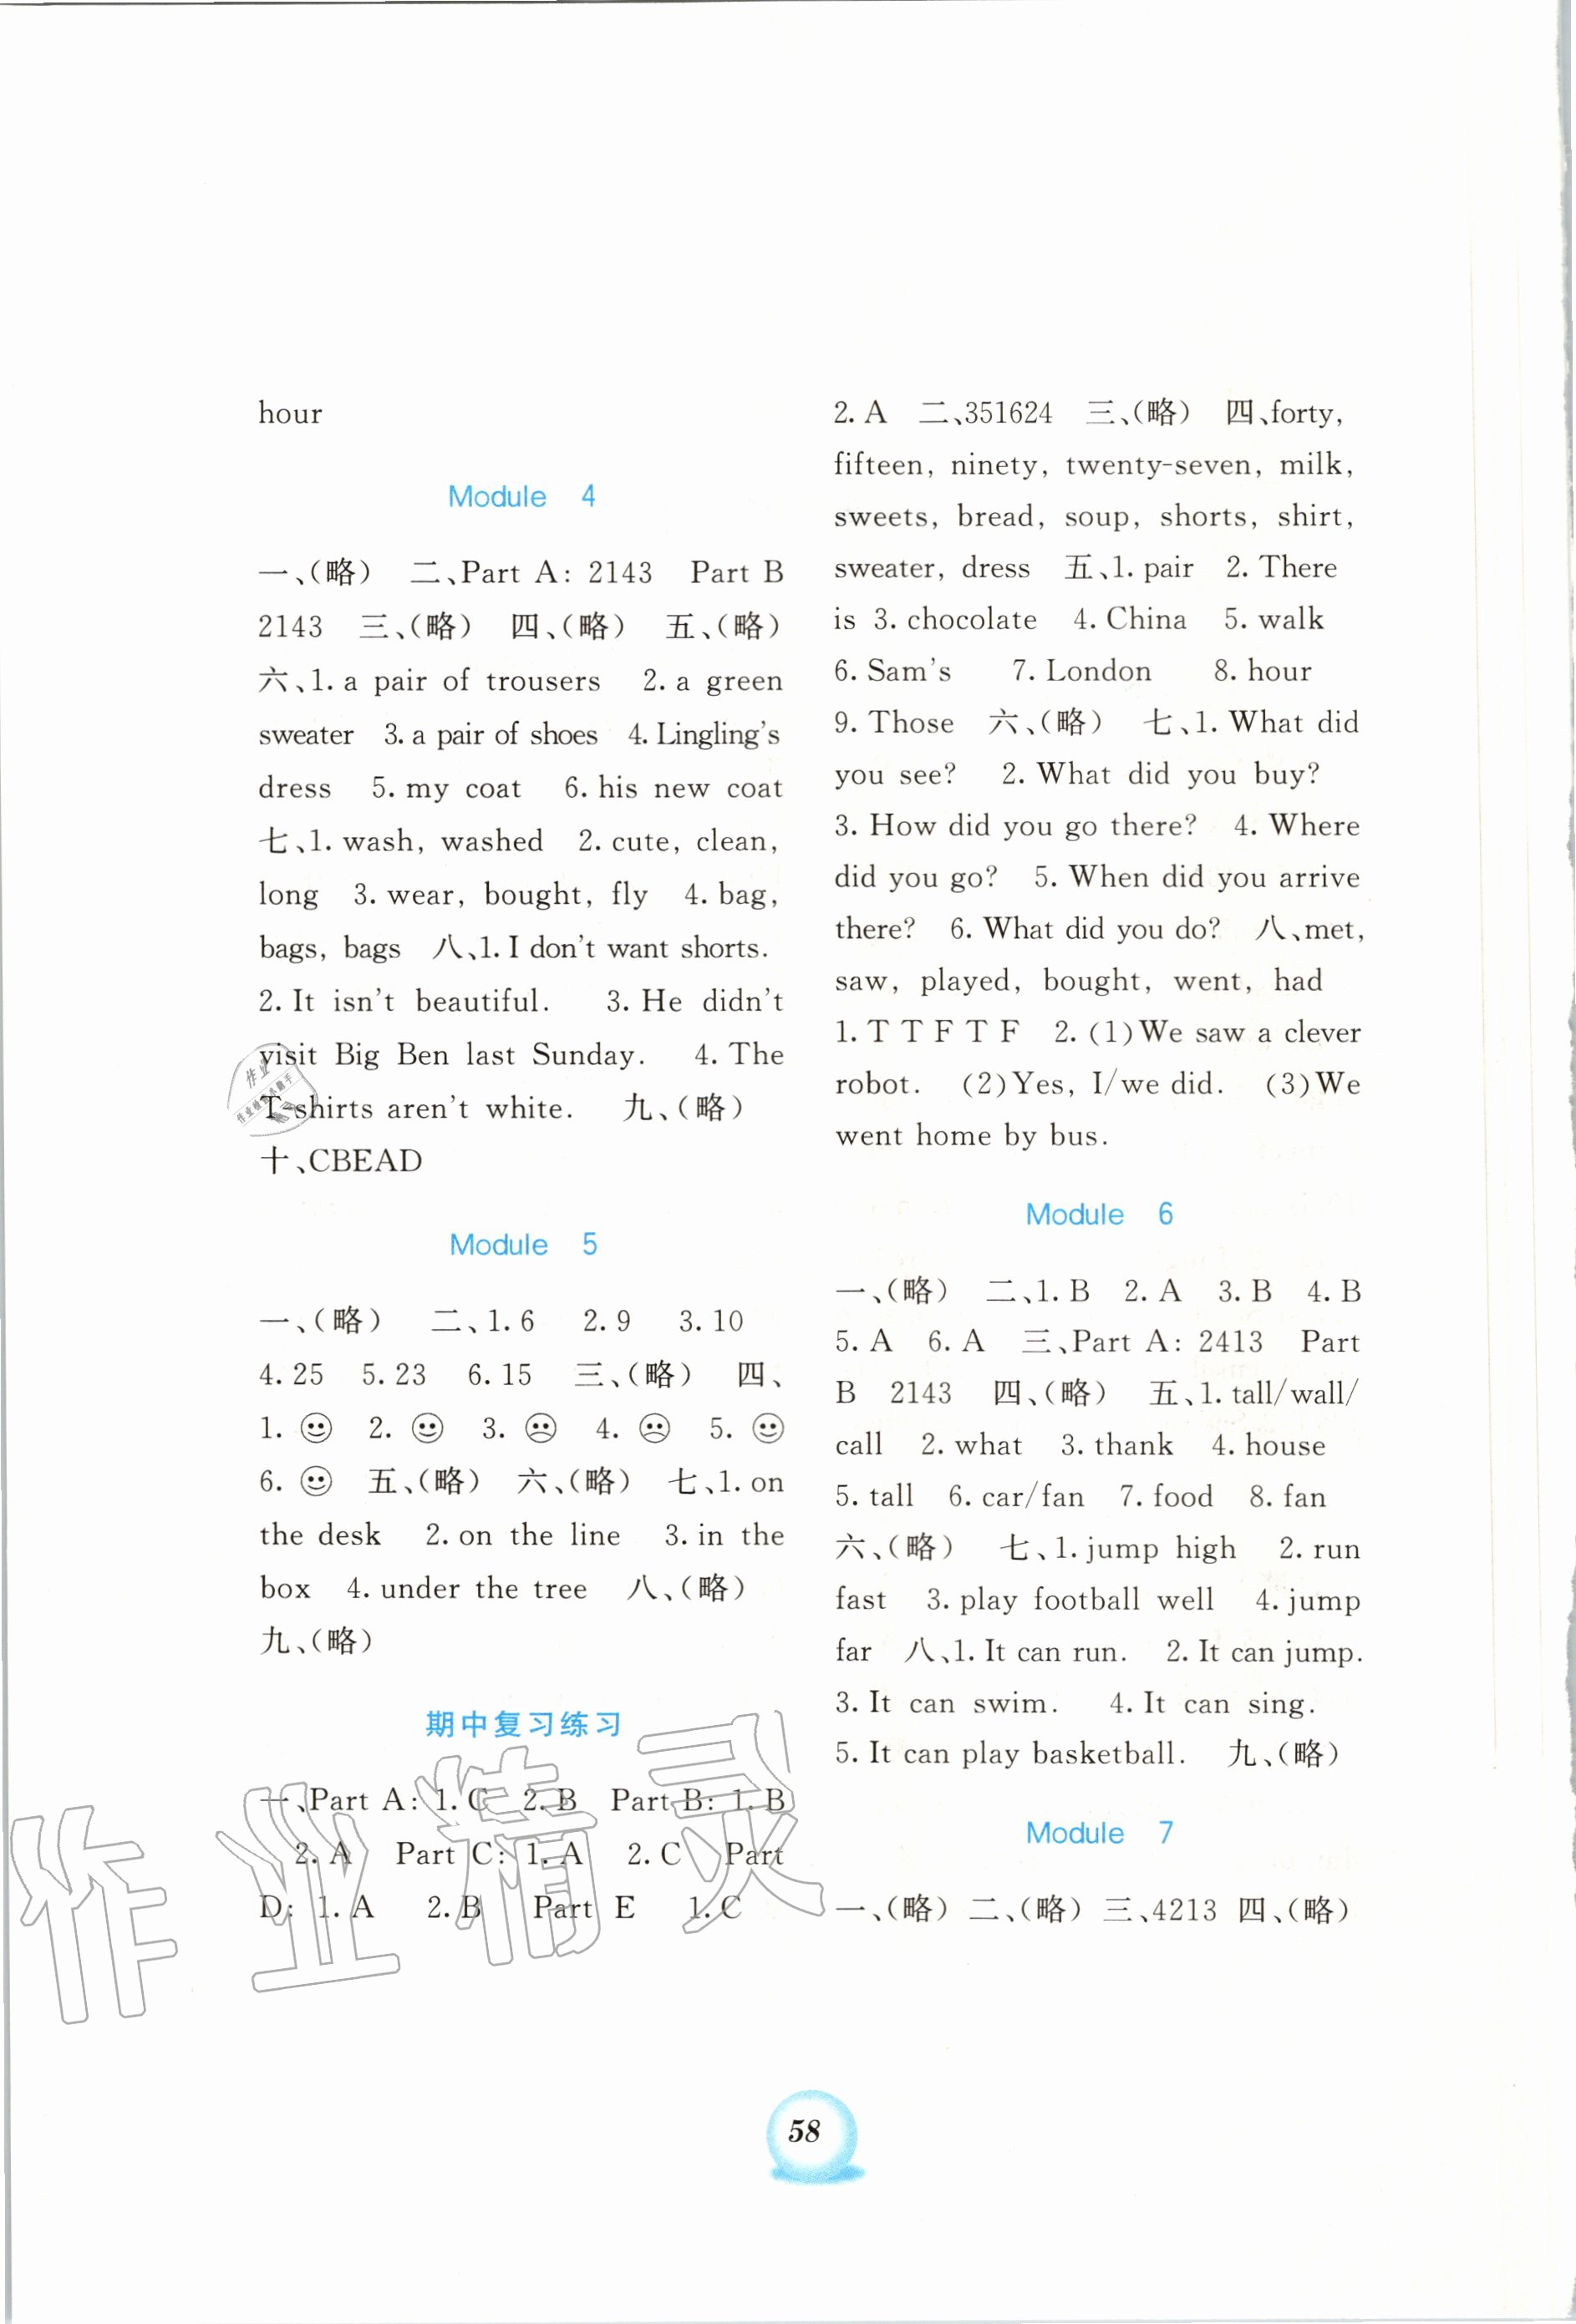 hour
Module 4
一、(略) 二、Part A: 2143 Part B
2143 三、(略) 四、(略) 五、(略)
六、1. a pair of trousers 2. a green
sweater 3. a pair of shoes 4. Lingling's
dress 5. my coat 6. his new coat
七、1. wash, washed 2. cute, clean,
long 3. wear, bought, fly 4. bag,
bags, bags 八、1. I don't want shorts.
2. It isn't beautiful. 3. He didn't
visit Big Ben last Sunday. 4. The
T-shirts aren't white. 九、(略)
十、CBEAD
Module 5
一、(略) 二、1. 6 2. 9 3. 10
4. 25 5. 23 6. 15 三、(略) 四、
1. ☺ 2. ☺ 3. ☹ 4. ☹ 5. ☺
6. ☺ 五、(略) 六、(略) 七、1. on
the desk 2. on the line 3. in the
box 4. under the tree 八、(略)
九、(略)
期中复习练习
一、Part A: 1. C 2. B Part B: 1. B
2. A Part C: 1. A 2. C Part
D: 1. A 2. B Part E 1. C
2. A 二、351624 三、(略) 四、forty,
fifteen, ninety, twenty-seven, milk,
sweets, bread, soup, shorts, shirt,
sweater, dress 五、1. pair 2. There
is 3. chocolate 4. China 5. walk
6. Sam's 7. London 8. hour
9. Those 六、(略) 七、1. What did
you see? 2. What did you buy?
3. How did you go there? 4. Where
did you go? 5. When did you arrive
there? 6. What did you do? 八、met,
saw, played, bought, went, had
1. T T F T F 2. (1)We saw a clever
robot. (2)Yes, I/we did. (3)We
went home by bus.
Module 6
一、(略) 二、1. B 2. A 3. B 4. B
5. A 6. A 三、Part A: 2413 Part
B 2143 四、(略) 五、1. tall/wall/
call 2. what 3. thank 4. house
5. tall 6. car/fan 7. food 8. fan
六、(略) 七、1. jump high 2. run
fast 3. play football well 4. jump
far 八、1. It can run. 2. It can jump.
3. It can swim. 4. It can sing.
5. It can play basketball. 九、(略)
Module 7
一、(略) 二、(略) 三、4213 四、(略)
58
作业精灵
作业